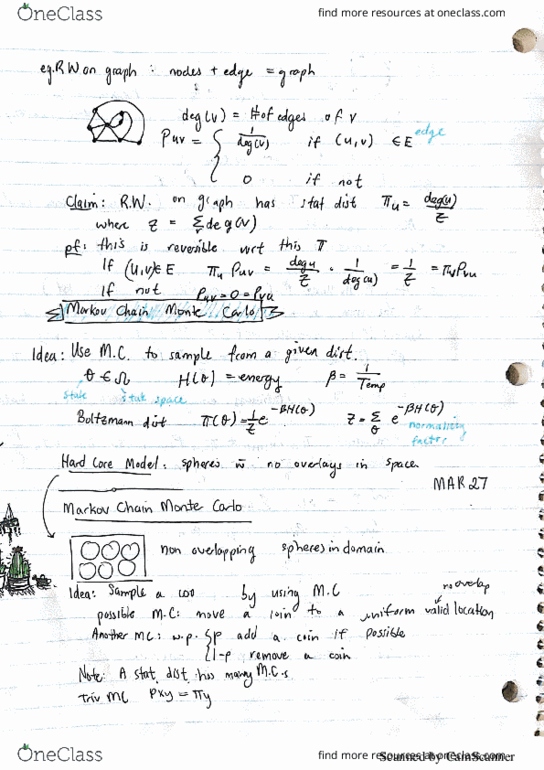 OneClass
find more resources at oneclass.com
eg. RW on graph : nodes + edge = graph
deg(v) = # of edges of v
Puv = { 1/deg(v) if (u,v) ∈ E edge
0 if not
Claim: R.W. on graph has stat dist πu = deg(u)/Z
where Z = Σ deg(v)
pf: this is reversible wrt this π
If (u,v) ∈ E πu Puv = deg u/Z · 1/deg(u) = 1/Z = πvPvu
If not Puv = 0 = Pvu
Markov Chain Monte Carlo
Idea: Use M.C. to sample from a given dist.
θ ∈ Ω H(θ) = energy β = 1/Temp
state state space
Boltzmann dist π(θ) = 1/Z e^-βH(θ) Z = Σθ e^-βH(θ)
normalizing factor
Hard Core Model: spheres w no overlays in space
MAR 27
Markov Chain Monte Carlo
non overlapping spheres in domain
Idea: Sample a by using M.C
no overlap
possible M.C: move a coin to a uniform valid location
Another MC: w.p. { p add a coin if possible
1-p remove a coin
Note: A stat dist has many M.C.s
triv MC Pxy = πy
OneClass
find more resources at oneclass.com
Scanned by CamScanner